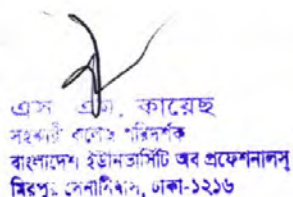 এস এম. কায়েছ
সহকারী কলেজ পরিদর্শক
বাংলাদেশ ইউনিভার্সিটি অব প্রফেশনালস্
মিরপুর সেনানিবাস, ঢাকা-১২১৬